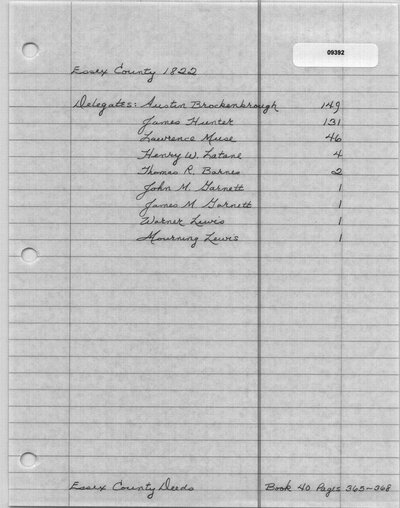 09392
Essex County 1822
Delegates: Austin Brockenbrough 149
James Hunter 131
Lawrence Muse 46
Henry W. Latane 4
Thomas R. Barnes 2
John M. Garnett 1
James M Garnett 1
Warner Lewis 1
Mourning Lewis 1
Essex County Deeds Book 40 Pages 365-368